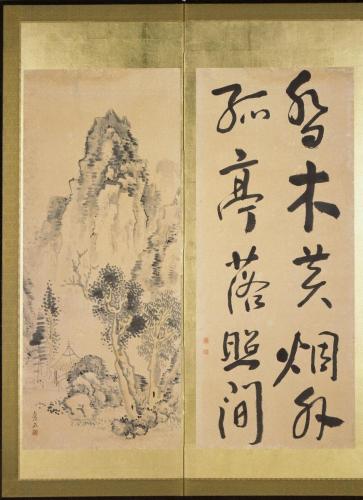 喬木荒烟外
孤亭落照間